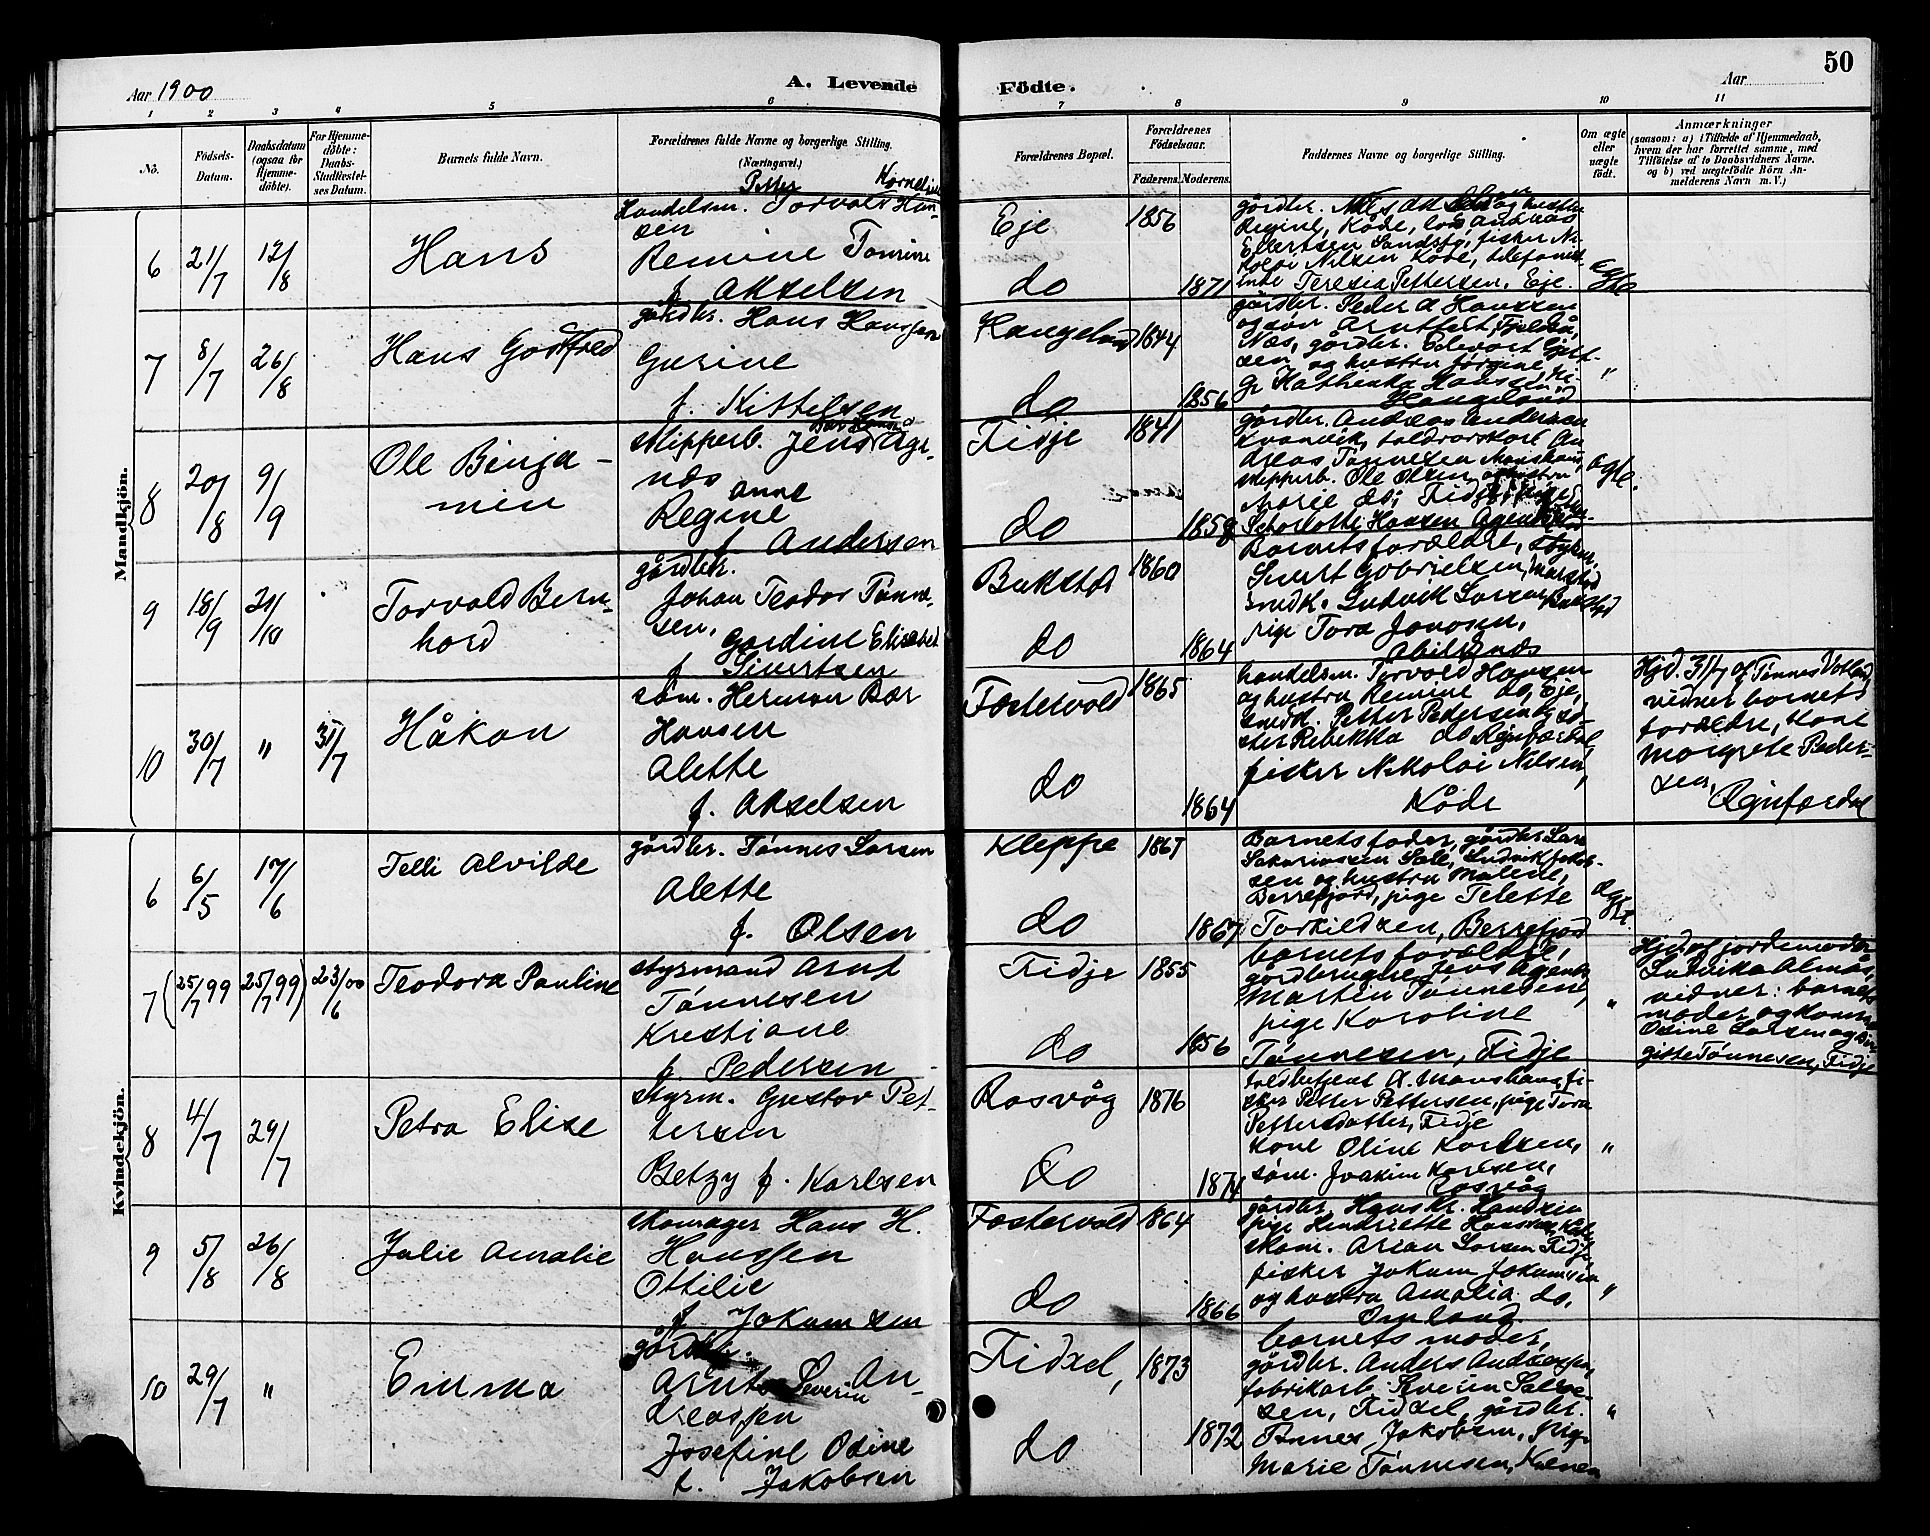 50
Aar 1900
A. Levende Födte.
Aar
1 2 3 4 5 6 7 8 9 10 11
No.
Födsels-Datum.
Daabsdatum (ogsaa for Hjemmedöbte).
For Hjemmedöbte: Daabs-Stadfæstelses Datum.
Barnets fulde Navn.
Forældrenes fulde Navne og borgerlige Stilling. (Næringsvei.)
Forældrenes Bopæl.
Forældrenes Födselsaar.
Faderens. Moderens.
Faddernes Navne og borgerlige Stilling.
Om ægte eller uægte födt.
Anmærkninger
(saasom: a) i Tilfælde af Hjemmedaab, hvem der har forrettet samme, med Tilföielse af to Daabsvidners Navne. og b) ved uægtefödte Börn Anmelderens Navn m. V.)
Mandkjön.
6 21/7 12/8
Hans
Petter Kornelius
Handelsm. Torvald Hansen
Remine Tomine
f. Akselsen
Eje 1856
do 1871
gårdbr. Nils
og hustru
Regine, Kåde,
fisker Nikolai Nilsen Kåde, telefonistinde Teresia Pettersen, Eje.
ægte
7 8/7 26/8
Hans Godtfred
gårdbr. Hans Hanssen
Gurine
f. Kittelsen
Haugeland 1844
do 1856
gårdbr. Peder A Hanssen
og søn
Næs, gårdbr.
og hustru Jørgine, pige Kathinka Hansen
Haugeland
"
8 20/8 9/9
Ole Binjamin
skipperb. Jens Agenæs
Anne
Regine
f. Andersen
Fidje 1841
do 1858
gårdbr. Andreas Andersen
Kvanvik,
Andreas Tønnesen
skipperb. Ole Olsen og hustru
Marie do, Fidje
Scharlotte Hansen
ægte.
9 18/9 21/10
Torvald Bernhard
gårdbr.
Johan Teodor Tønnesen,
Gordine Elisabet
f. Sivertsen
Bakstad 1860
do 1864
Barnets forældre,
Sivert Gabrielsen,
snedk. Ludvik Larsen
pige Tora Jonassen,
10 30/7 " 31/7
Håkon
søm. Herman Bær
Hansen
Alette
f. Akselsen
Fostervold 1865
do 1864
handelsm. Torvald Hansen
og hustru Remine do, Eje,
snedk. Petter Pedersen og søster Rebekka do
fisker Nikolai Nilsen,
Kåde
Hjd. 31/7 af Tønnes
vidner barnets
forældre, kone
Margrete Pedersen,
Kvindekjön.
6 6/5 17/6
Telli Alvilde
gårdbr. Tønnes Larsen
Alette
f. Olsen
Kleppe 1867
do 1867
Barnets fader, gårdbr. Lars
Sakariassen Sale, Ludvik Jakobsen og hustru Malene,
Berrefjord, pige Telette
Torkildsen, Berrefjord
ægte.
7 (25/7 99 25/7 99) 23/6 00
Teodora Pauline
styrmand Arnt
Tønnesen
Kristiane
f. Pedersen
Fidje 1855
do 1856
barnets forældre,
gårdbrugere Jens Agenæs,
Martin Tønnesen,
pige Karoline
Tønnesen, Fidje
"
Hjd. af jordemoder
Ludvika Alman,
vidner: barnets
moder og kone
Osine Larsen og Birgitte Tønnesen, Fidje
8 4/7 29/7
Petra Elise
styrm. Gustav Pettersen
Betzy f. Karlsen
Rosvåg 1876
do 1874
toldbetjent A. Manshaus, fisker Petter Pettersen, pige Tora
Pettersdatter, Fidje
kone Oline Karlsen,
søm. Joakim Karlsen,
Rosvåg
"
9 5/8 26/8
Julie Amalie
skomager Hans H.
Hanssen
Ottilie
f. Jokumsen
Fostervold 1864
do 1866
gårdbr. Hans Kr.
pige Hendriette Hanssen,
skom. Larsen Fidje
fisker Jokum Jokumsen
og hustru Amalia do,
Omland.
"
10 29/7 "
Emma
gårdbr.
Arnt Severin Andreassen
Josefine Osine
f. Jakobsen
Fidsel, 1873
do 1872
barnets moder,
gårdbr. Anders Andreassen,
fabrikarb. Severin Salvesen, Fidsel, gårdbr.
Tønnes Jakobsen, pige
Marie Tønnesen,
"